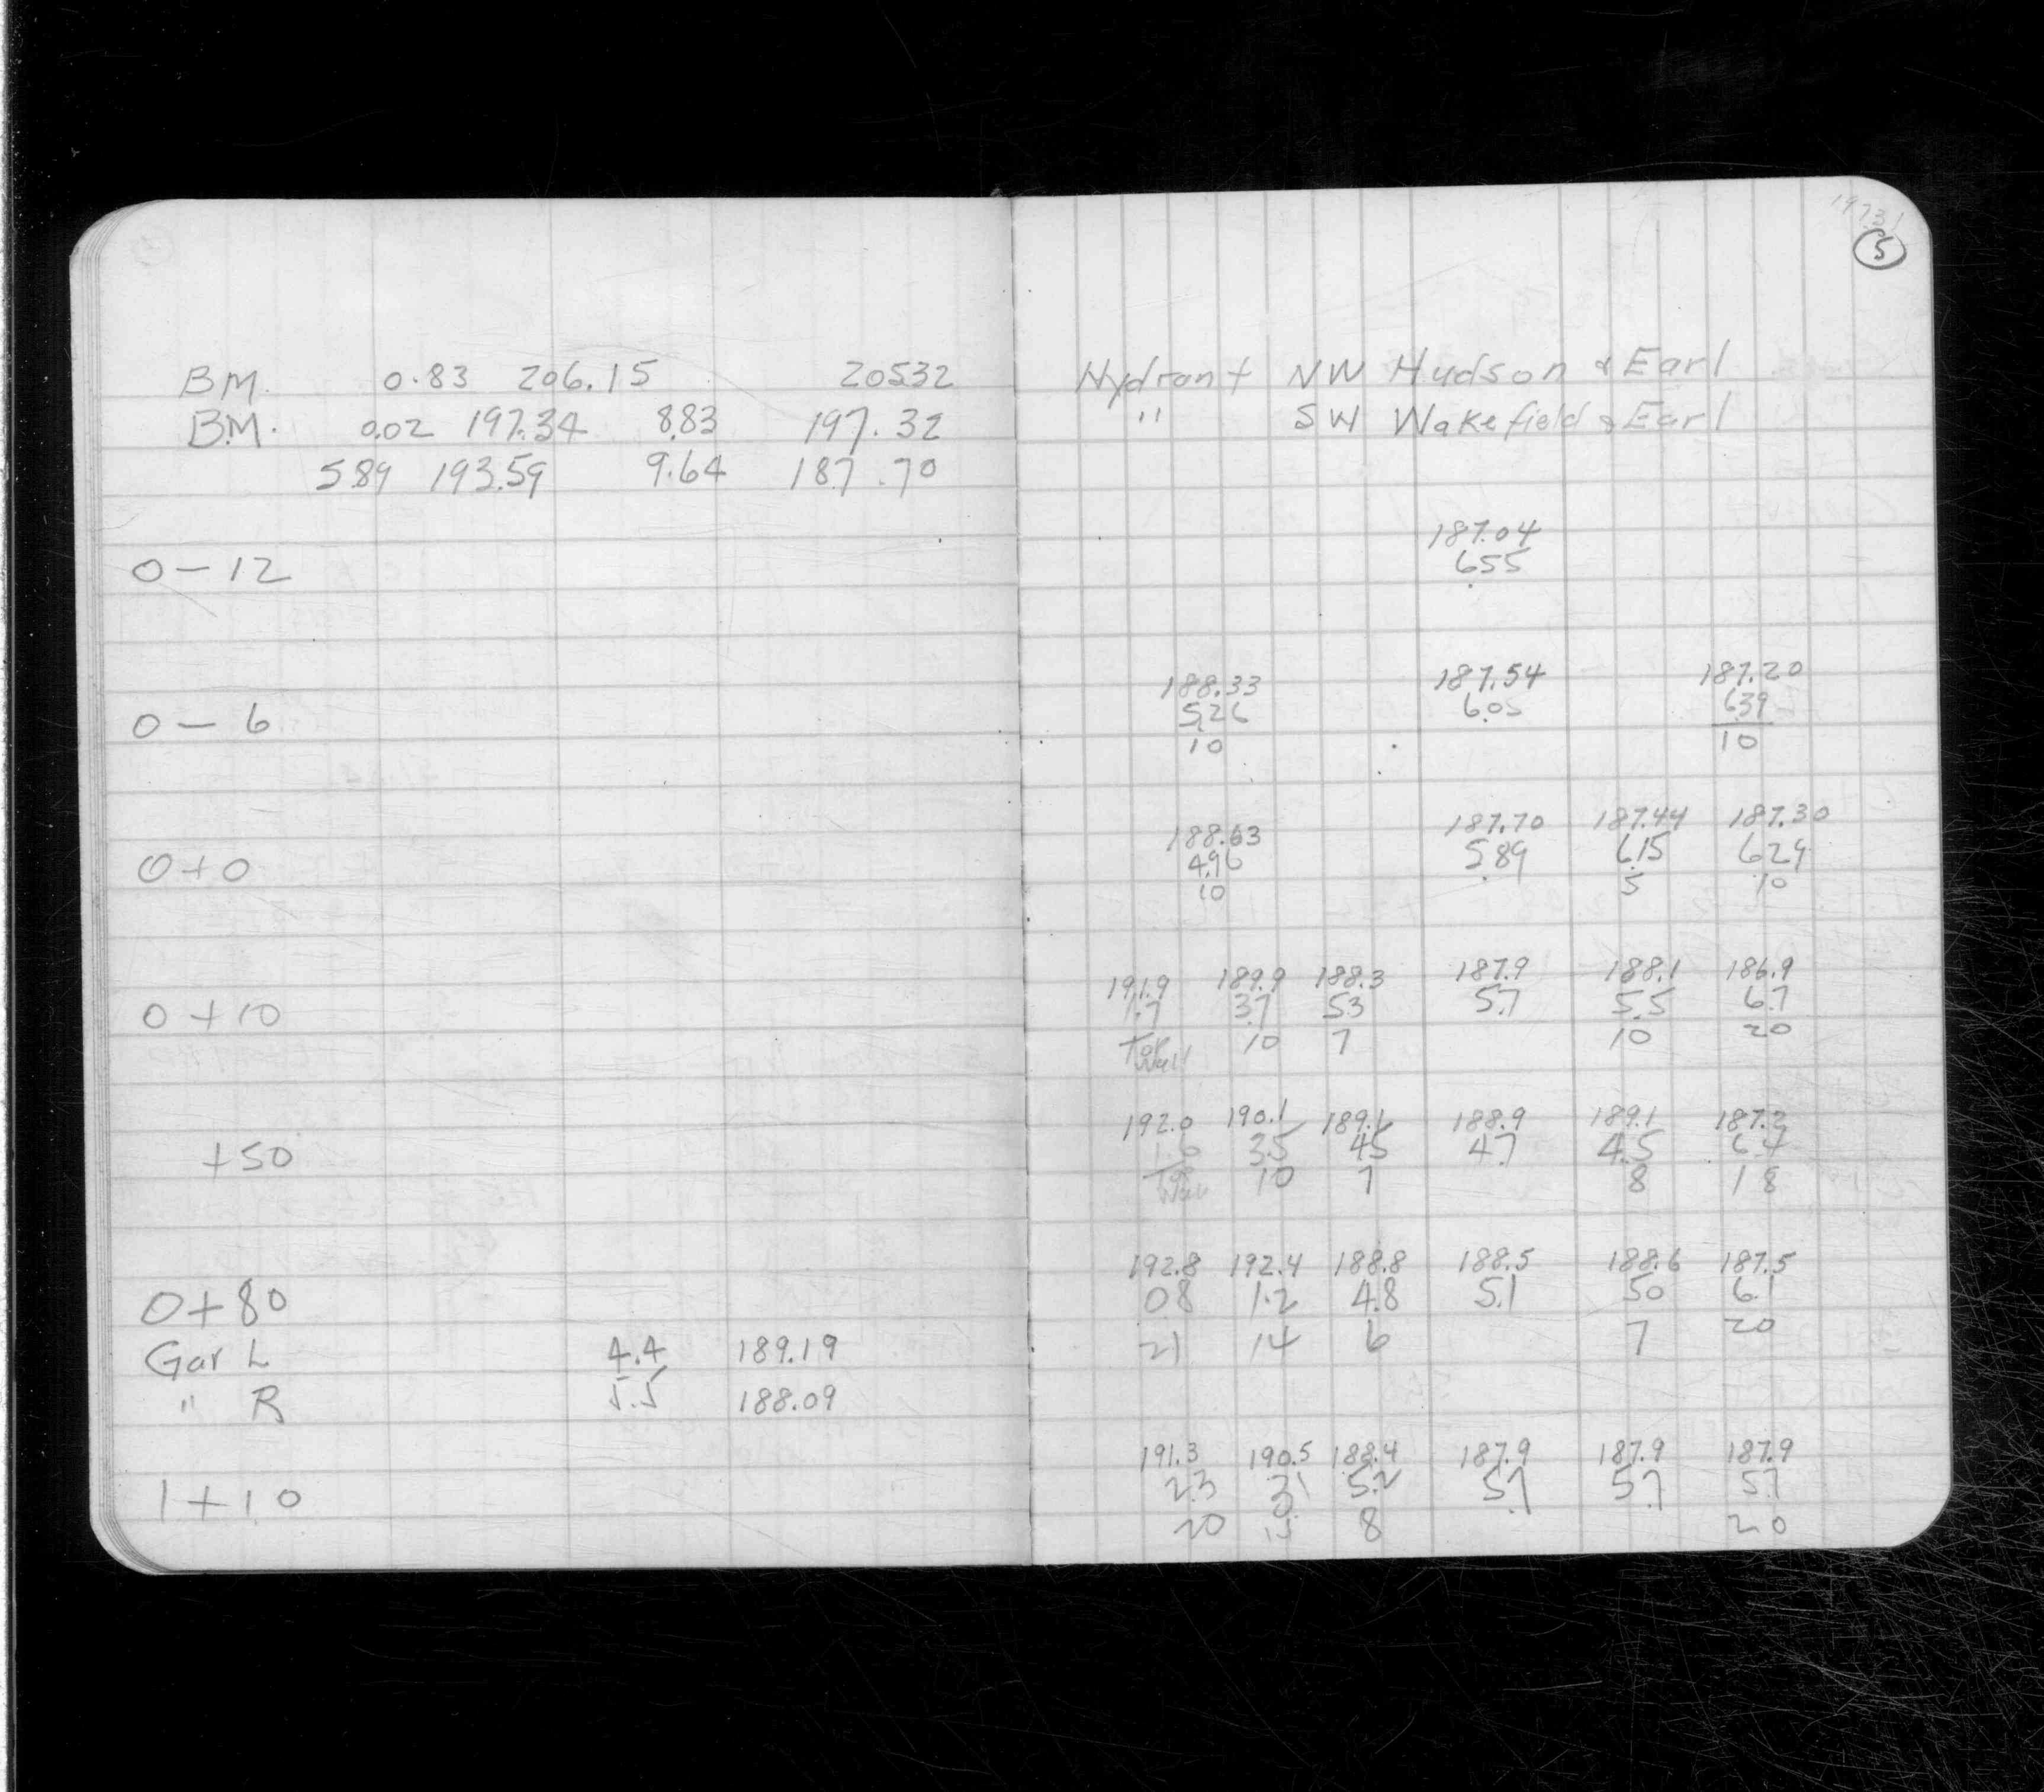 19731
5
BM. 0.83 206.15 205.32 Hydrant NW Hudson & Earl
B.M. 0.02 197.34 8.83 197.32 " SW Wakefield & Earl
5.89 193.59 9.64 187.70
187.04
0 - 12 6.55
188.33 187.54 187.20
0 - 6 5.26 6.05 6.39
10 10
188.63 187.70 187.44 187.30
0 + 0 4.96 5.89 6.15 6.29
10 5 10
191.9 189.9 188.3 187.9 188.1 186.9
0 + 10 1.7 3.7 5.3 5.7 5.5 6.7
Top Wall 10 7 10 20
192.0 190.1 189.1 188.9 189.1 187.2
+50 1.6 3.5 4.5 4.7 4.5 6.4
Top Wall 10 7 8 18
192.8 192.4 188.8 188.5 188.6 187.5
0+80 0.8 1.2 4.8 5.1 5.0 6.1
21 14 6 7 20
Gar L 4.4 189.19
" R 5.5 188.09
191.3 190.5 188.4 187.9 187.9 187.9
1+10 2.3 3.1 5.2 5.7 5.7 5.7
20 15 8 20